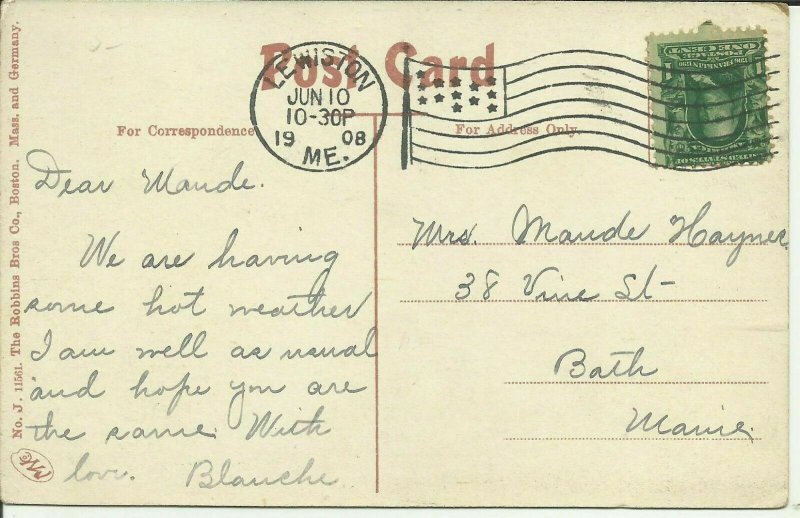 Post Card
LEWISTON
JUN 10
10-30P
19 08
ME.
ONE CENT
For Correspondence
For Address Only.
No. J. 11561. The Robbins Bros Co., Boston. Mass. and Germany.
Dear Maude.
We are having
some hot weather
I am well as usual
and hope you are
the same. With
love. Blanche
Mrs. Maude Haynes
38 Vine St
Bath
Maine.